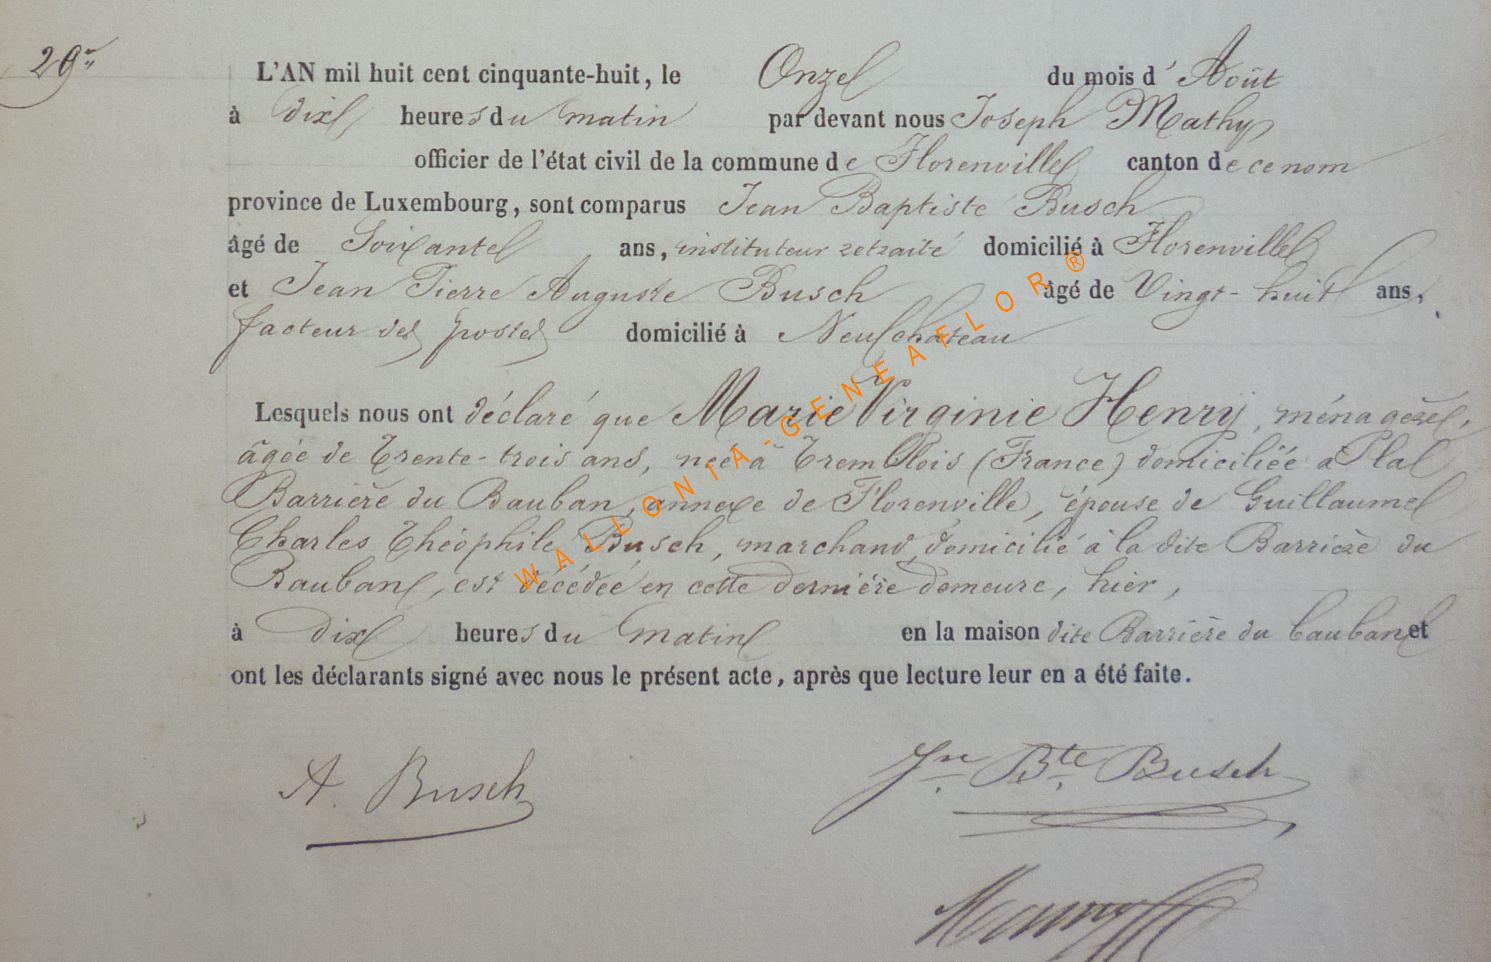 29.
L'AN mil huit cent cinquante-huit, le Onze du mois d' Août
à dix heures du matin par devant nous Joseph Mathy
officier de l'état civil de la commune de Florenville canton de ce nom
province de Luxembourg, sont comparus Jean Baptiste Busch
âgé de Soixante ans, instituteur retraité domicilié à Florenville
et Jean Pierre Auguste Busch âgé de Vingt-huit ans,
facteur des postes domicilié à Neufchateau
Lesquels nous ont déclaré que Marie Virginie Henry, ménagère,
âgée de Trente-trois ans, née à Tremblois (France) domiciliée à la
Barrière du Bauban, annexe de Florenville, épouse de Guillaume
Charles Théophile Busch, marchand, domicilié à la dite Barrière du
Bauban, est décédée en cette dernière demeure, hier,
à dix heures du matin en la maison dite Barrière du bauban et
ont les déclarants signé avec nous le présent acte, après que lecture leur en a été faite.
A. Busch Jn Bte Busch
WALLONIA-GENEAFLOR®